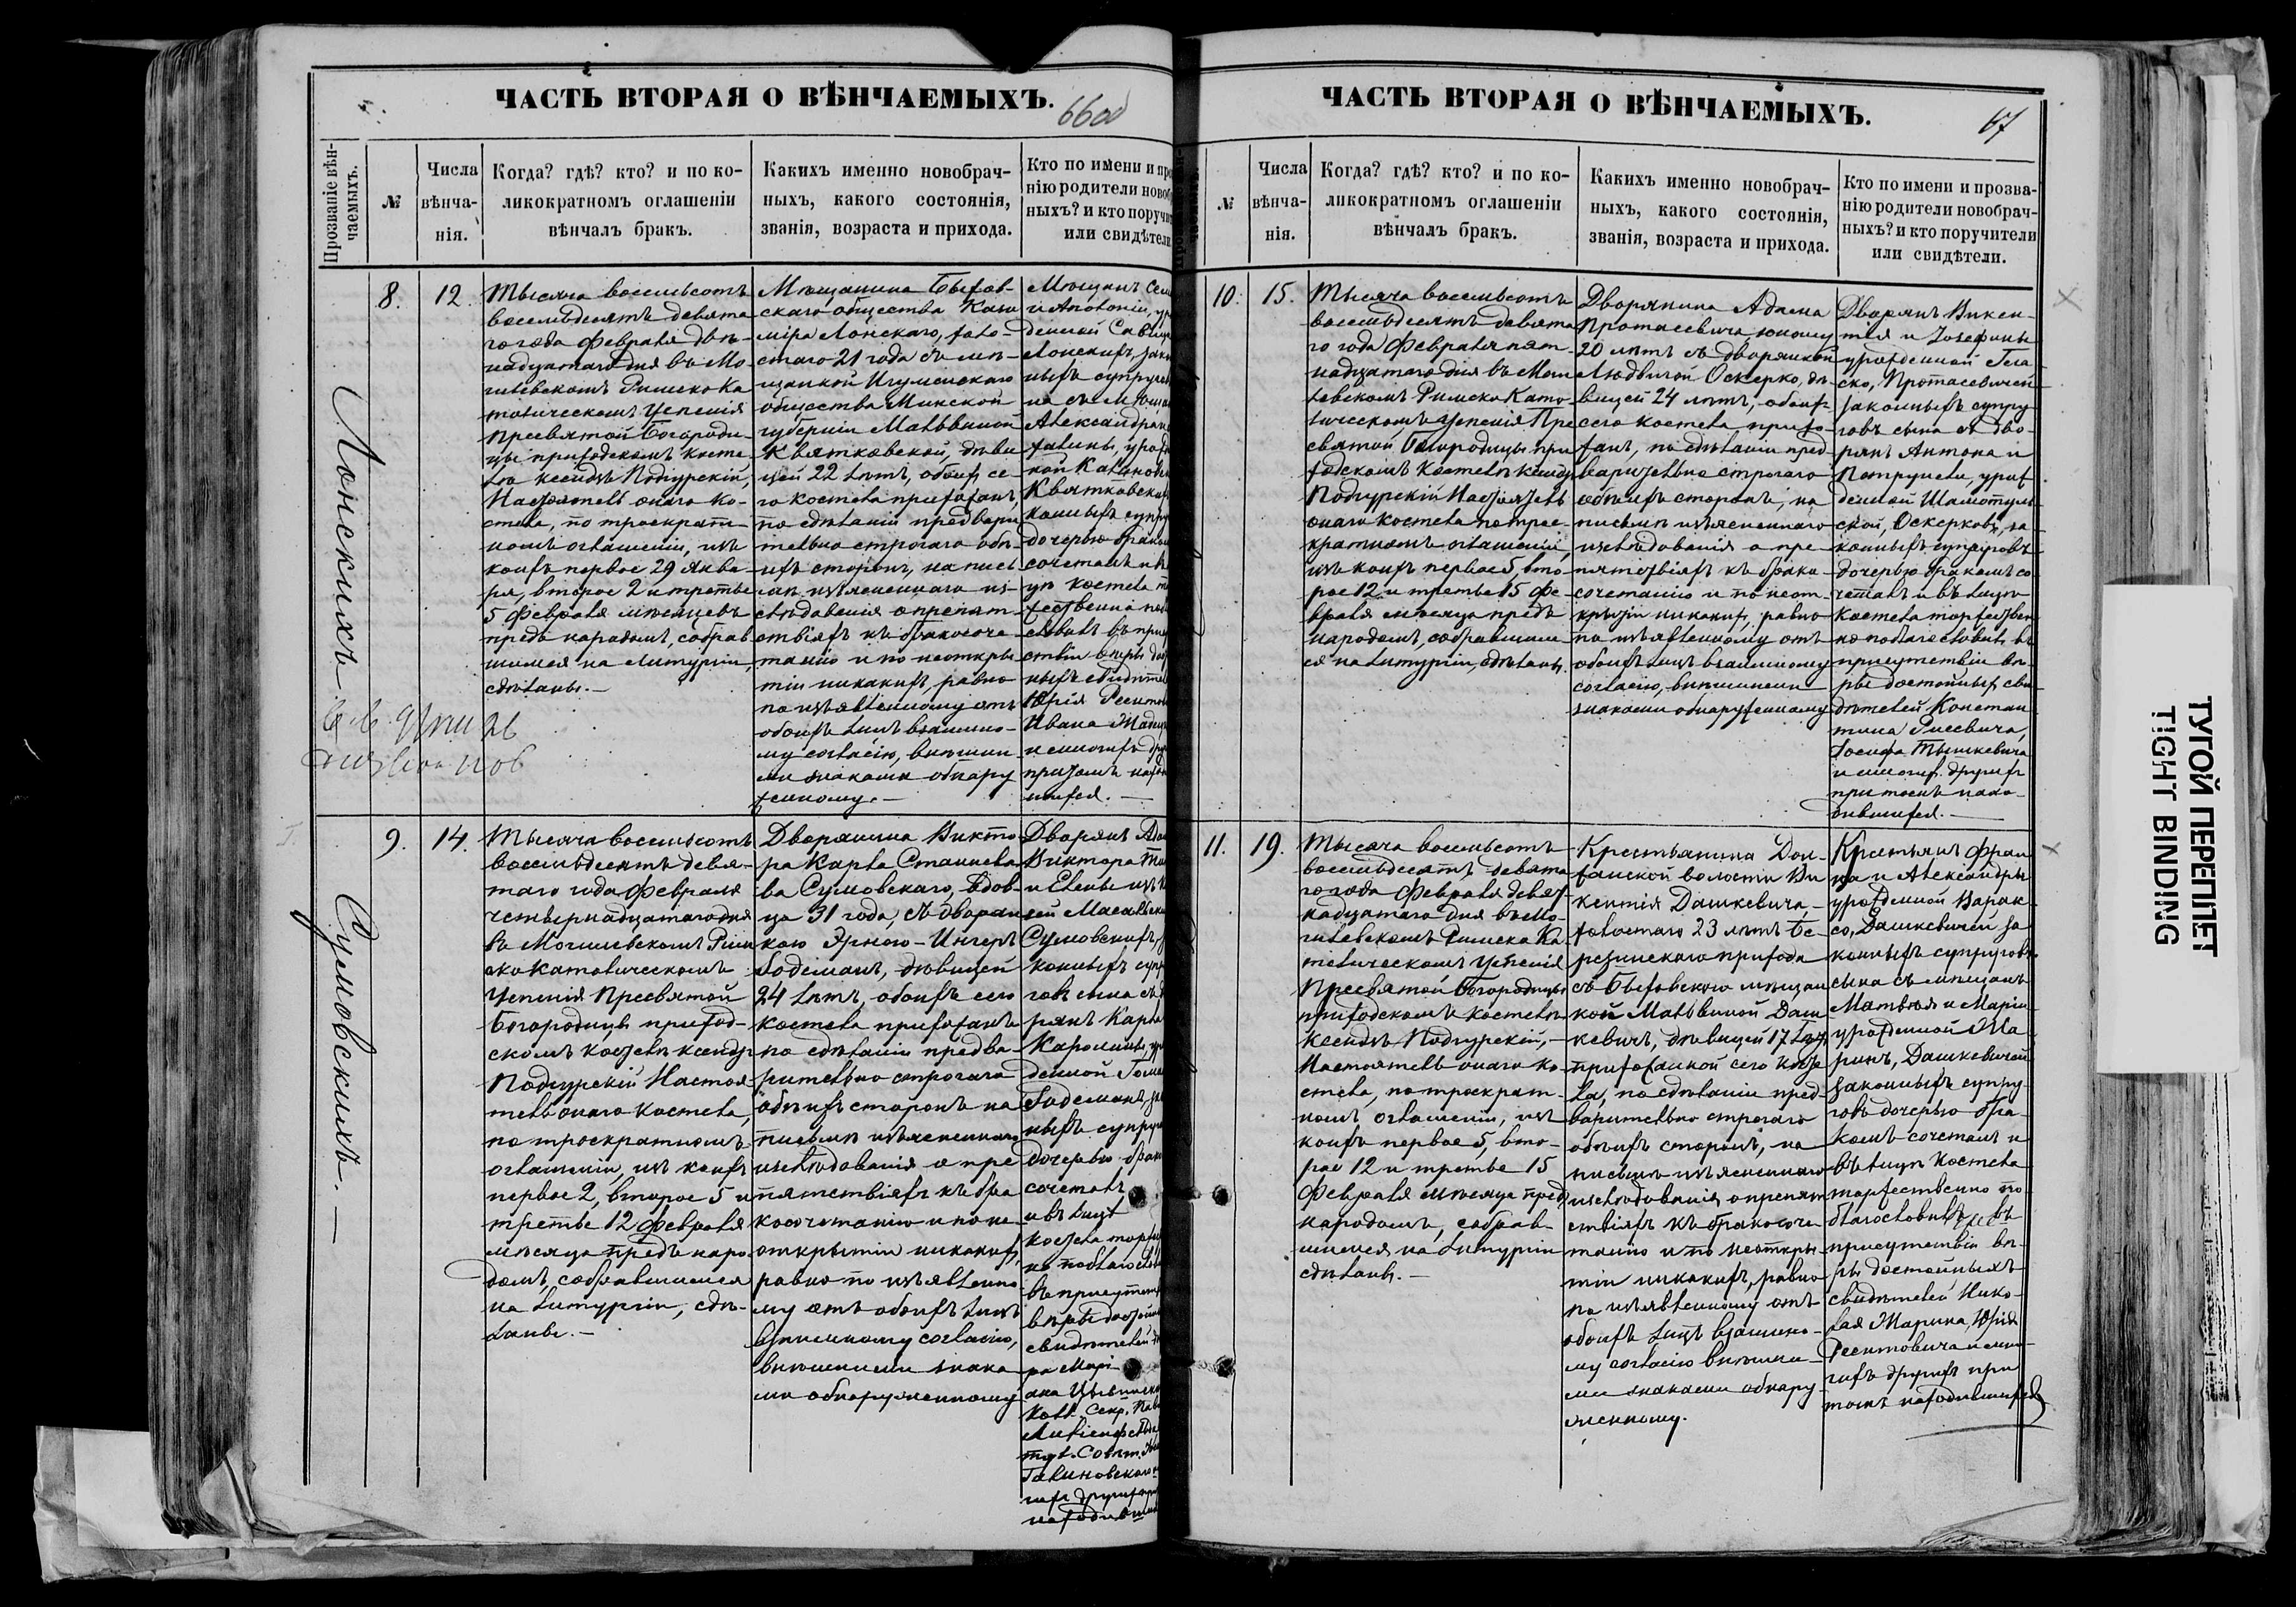 ЧАСТЬ ВТОРАЯ О ВѢНЧАЕМЫХЪ.
66об
Прозваніе вѣн-
чаемыхъ.
№
Числа
вѣнча-
нія.
Когда? гдѣ? кто? и по ко-
ликократномъ оглашеніи
вѣнчалъ бракъ.
Какихъ именно новобрач-
ныхъ, какого состоянія,
званія, возраста и прихода.
Кто по имени и про
нію родители новоб
ныхъ? и кто поручит
или свидѣтели
Лонскихъ
8.
12.
Тысяча восемьсотъ
восемьдесятъ девята
го года Февраля двѣ-
надцатаго дня въ Мо-
гилевскомъ Римско Ка
толическомъ Успенія
Пресвятой Богороди-
цы приходскомъ Косте
лѣ ксендзъ Подгурскій,
Настоятель онаго Ко-
стела, по троекрат-
номъ оглашеніи, изъ
коихъ первое 29 Янва-
ря, второе 2 и третье
5 Февраля мѣсяцевъ
предъ народомъ, собрав
шимся на Литургіи,
сдѣланы.—
Мѣщанина Быхов-
скаго общества Кази
міра Лонскаго, холо-
стаго 21 года съ мѣ-
щанкой Игуменскаго
общества Минской
губерніи Мальвиной
Квятковской, дѣви
цей 22 лѣтъ, обоих се-
го костела прихожан,
по сдѣланіи предвари
тельно строгаго обѣ-
ихъ сторон, на пись
мѣ изъясненнаго из-
слѣдованія о препят
ствіяхъ къ бракосоче
танію и по неоткры
тіи никакихъ, равно
по изъявленному отъ
обоихъ лицъ взаимно-
му согласію, внѣшни
ми знаками обнару
женному.—
Мѣщанъ Сем
и Антоніи, ур
денной Савиц
Лонскихъ, зако
ныхъ супругов
на съ Мѣщан
Александрою
Квятковских
конныхъ супру
дочерью браком
сочеталъ и въ
цѣ костела т
жественно по
словилъ въ при
ствіи вѣры до
ныхъ свидѣтел
Юрія Ресинтов
Ивана
и многихъ дру
при томъ нахо
шихся.—
Сумовскихъ.—
9.
14.
Тысяча восемьсотъ
восемьдесятъ девя-
таго года Февраля
четырнадцатаго дня
въ Могилевскомъ Рим
ско Католическомъ
Успенія Пресвятой
Богородицы приход-
скомъ костелѣ ксендз
Подгурскій Настоя-
тель онаго Костела,
по троекратномъ
оглашеніи, изъ коихъ
первое 2, второе 5 и
третье 12 Февраля
мѣсяца предъ наро-
домъ, собравшимся
на Литургіи, сдѣ-
ланы.—
Дворянина Викто-
ра Карла Станисла
ва Сумовскаго, вдов-
ца 31 года, съ дворян
кою Эрною-Ингеръ
Годеманъ, дѣвицей
24 лѣтъ, обоихъ сего
костела прихожанъ
по сдѣланіи предва-
рительно строгаго
обѣихъ сторонъ на
письмѣ изъясненнаго
изслѣдованія о пре
пятствіяхъ къ бра
косочетанію и по не
открытіи никакихъ,
равно по изъявленно
му отъ обоихъ лицъ
взаимному согласію,
внѣшними знака
ми обнаруженному
Дворянъ Ада
Виктора
и Елены изъ
Сумовскихъ,
конныхъ супр
говъ сына съ д
рянъ Карла
Каролины, ур
денной
Годеманъ, за
ныхъ супруг
дочерью брак
сочеталъ
и въ лицѣ
костела торж
но поблагослов
въ присутств
вѣры достой
свидѣтелей
Колл. Секр.
тул. Совѣт.
Галиновскаго
гихъ другихъ при
находивши
ЧАСТЬ ВТОРАЯ О ВѢНЧАЕМЫХЪ.
67
№
Числа
вѣнча-
нія.
Когда? гдѣ? кто? и по ко-
ликократномъ оглашеніи
вѣнчалъ бракъ.
Какихъ именно новобрач-
ныхъ, какого состоянія,
званія, возраста и прихода.
Кто по имени и прозва-
нію родители новобрач-
ныхъ? и кто поручители
или свидѣтели.
10.
15.
Тысяча восемьсотъ
восемьдесятъ девята
го года Февраля пят-
надцатаго дня въ Моги
левскомъ Римско Като-
лическомъ Успенія Пре
святой Богородицы при
ходскомъ Костелѣ ксендз
Подгурскій Настоятель
онаго Костела по трое-
кратномъ оглашеніи,
изъ коихъ первое 5, вто-
рое 12 и третье 15 Фе-
враля мѣсяца предъ
народомъ, собравшим
ся на Литургіи, сдѣланы.
Дворянина Адама
Протасевича юношу
20 лѣтъ съ дворянкой
Людвигой Оскерко, дѣ-
вицей 24 лѣтъ, обоих
сего Костела прихо-
жан, по сдѣланіи пред
варительно строгаго
обѣихъ сторонъ, на
письмѣ изъясненнаго
изслѣдованія о пре
пятствіяхъ къ брако
сочетанію и по неот-
крытіи никакихъ, равно
по изъявленному отъ
обоихъ лицъ взаимному
согласію, внѣшними
знаками обнаруженному
Дворянъ Викен-
тія и Іозефины
урожденной
Протасевичей
законныхъ супру-
говъ сына съ дво-
рянъ Антона и
Петрунели, урож
денной Шамотуль
ской, Оскерковъ, за
конныхъ супруговъ
дочерью бракомъ со-
четалъ и въ лицѣ
Костела торжествен
но поблагословилъ въ
присутствіи вѣ-
ры достойныхъ сви
дѣтелей Констан
тина Гисевича,
Іосифа Тышкевича
и многихъ другихъ
при томъ нахо-
дившихся.—
11.
19.
Тысяча восемьсотъ
восемьдесятъ девята
го года Февраля девят
надцатаго дня въ Мо-
гилевскомъ Римско Ка
толическомъ Успенія
Пресвятой Богородицы
приходскомъ Костелѣ
ксендзъ Подгурскій,—
Настоятель онаго Ко-
стела, по троекрат-
номъ оглашеніи, изъ
коихъ первое 5, вто-
рое 12 и третье 15
Февраля мѣсяца предъ
народомъ, собрав-
шимся на Литургіи
сдѣланы.—
Крестьянина Дол-
жанской волости Ви
кентія Дашкевича,—
холостаго 23 лѣтъ Бе-
резинскаго прихода
съ Быховскою мѣщан
кой Мальвиной Даш
кевичъ, дѣвицей 17 лѣт,
прихожанкой сего Косте
ла, по сдѣланіи пред-
варительно строгаго
обѣихъ сторонъ, на
письмѣ изъясненнаго
изслѣдованія о препят
ствіяхъ къ бракосоче
танію и по неоткры-
тіи никакихъ, равно
по изъявленному отъ
обоихъ лицъ взаимно-
му согласію внѣшни-
ми знаками обнару-
женному.
Крестьянъ Фран
ца и Александры
урожденной Варак-
со, Дашкевичей за
конныхъ супруговъ
сына съ мѣщанъ
Матвѣя и Маріи
урожденной Ма
ринъ, Дашкевичей
законныхъ супру-
говъ дочерью бра-
комъ сочеталъ и
въ лицѣ Костела
торжественно по-
благословилъ въ
присутствіи вѣ-
ры достойныхъ
свидѣтелей Нико-
лая Марина, Юрія
Ресинтовича и мно-
гихъ другихъ при
томъ находившихся
ТУГОЙ ПЕРЕПЛЕТ
TIGHT BINDING